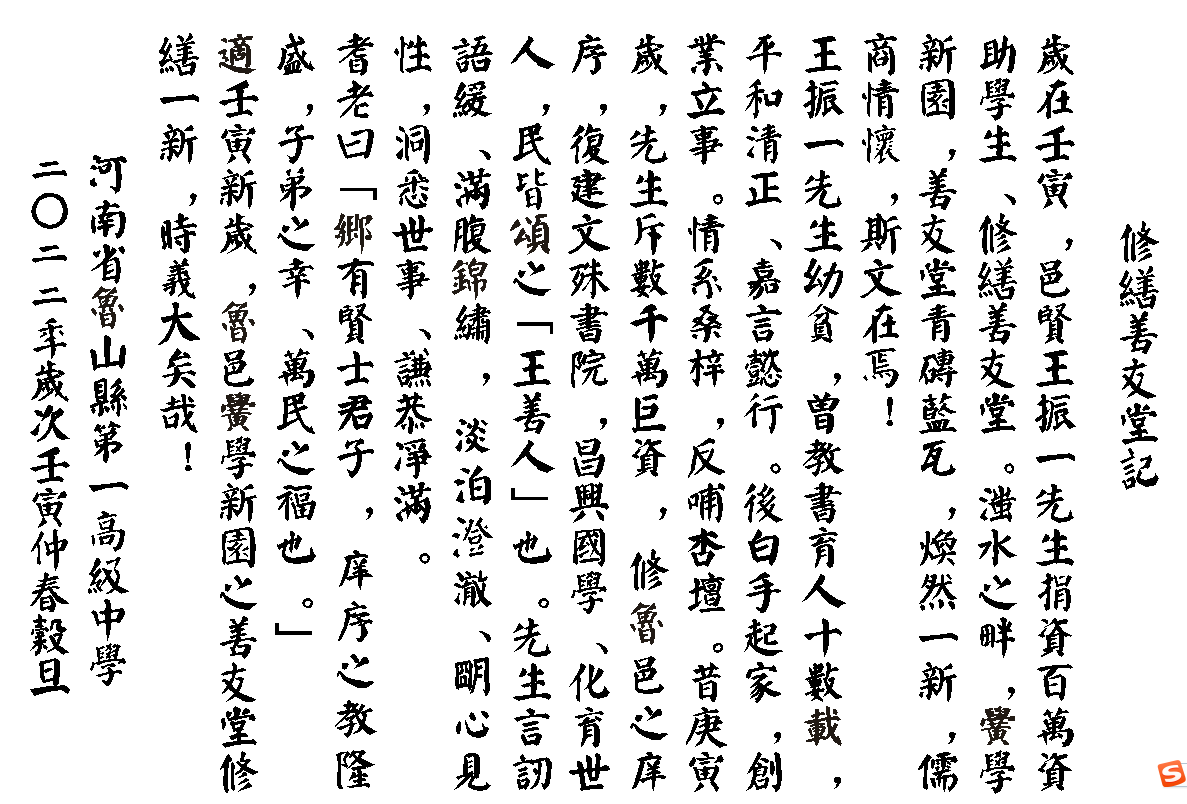 修繕善友堂記
歲在壬寅，邑賢王振一先生捐資百萬資
助學生、修繕善友堂。滍水之畔，黌學
新園，善友堂青磚藍瓦，煥然一新，儒
商情懷，斯文在焉！
王振一先生幼貧，曾教書育人十數載，
平和清正、嘉言懿行。後白手起家，創
業立事。情系桑梓，反哺杏壇。昔庚寅
歲，先生斥數千萬巨資，修魯邑之庠
序，復建文殊書院，昌興國學、化育世
人，民皆頌之「王善人」也。先生言訒
語緩、滿腹錦繡，淡泊澄澈、明心見
性，洞悉世事、謙恭淨滿。
耆老曰「鄉有賢士君子，庠序之教隆
盛，子弟之幸、萬民之福也。」
適壬寅新歲，魯邑黌學新園之善友堂修
繕一新，時義大矣哉！
河南省魯山縣第一高級中學
二〇二二年歲次壬寅仲春穀旦